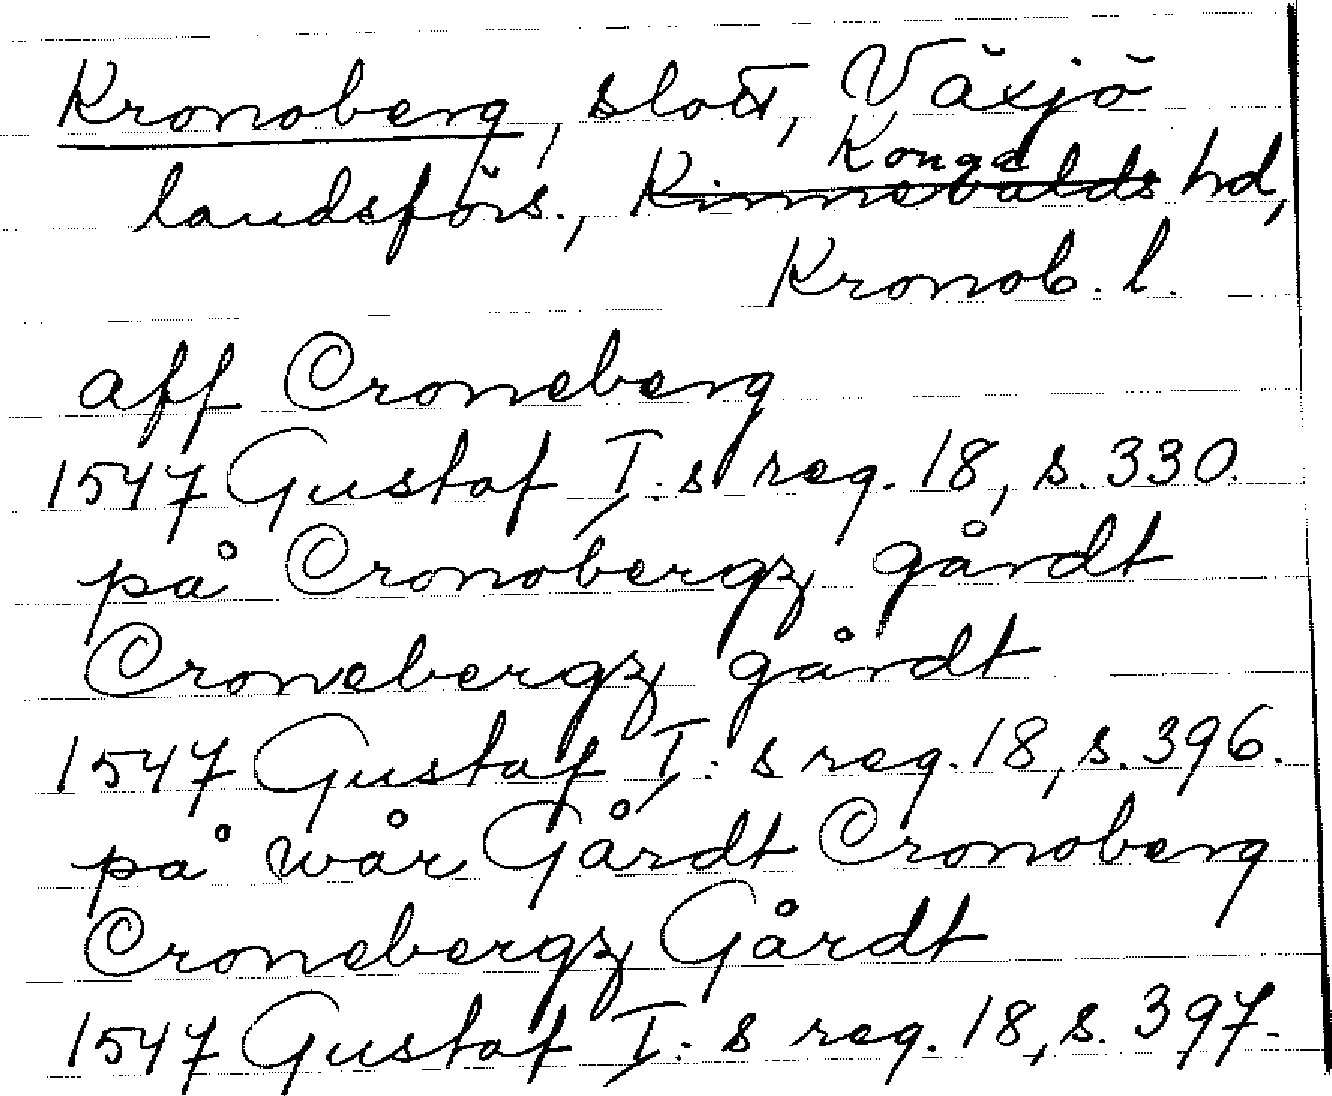 Kronoberg, slott, Växjö
landsförs., Konga Kinnevalds hd,
Kronob. l.
aff Croneberg
1547 Gustaf I:s reg. 18, s. 330.
på Cronobergz gårdt
Cronebergz gårdt
1547 Gustaf I:s reg. 18, s. 396.
på wår Gårdt Cronoberg
Cronebergz Gårdt
1547 Gustaf I:s reg. 18, s. 397.